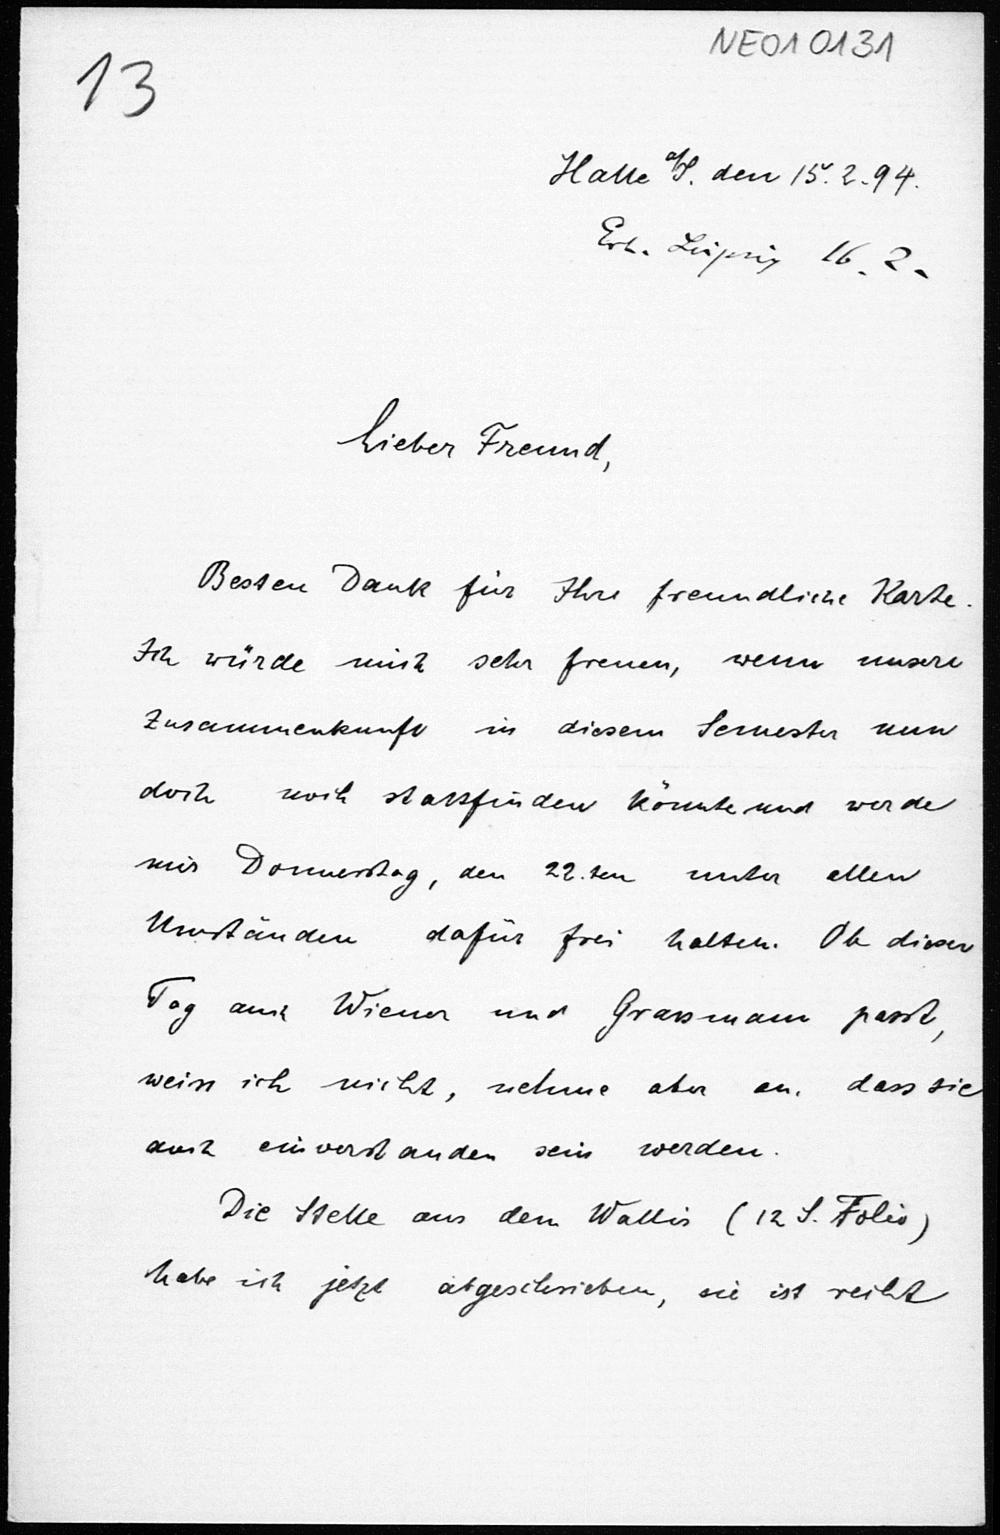 13
NE010131
Halle a/S. den 15.2.94.
Erh. Leipzig 16.2.
Lieber Freund,
Besten Dank für Ihre freundliche Karte.
Ich würde mich sehr freuen, wenn unsere
Zusammenkunft in diesem Semester nun
doch noch stattfinden könnte und werde
mir Donnerstag, den 22.ten unter allen
Umständen dafür frei halten. Ob dieser
Tag auch Wiener und Grassmann passt,
weiss ich nicht, nehme aber an, dass sie
auch einverstanden sein werden.
Die Stelle aus dem Wallis (12 S. Folio)
habe ich jetzt abgeschrieben, sie ist recht